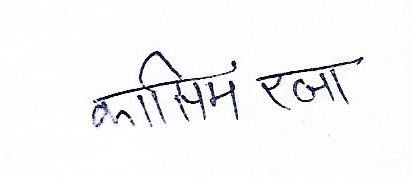 कासिम रजा